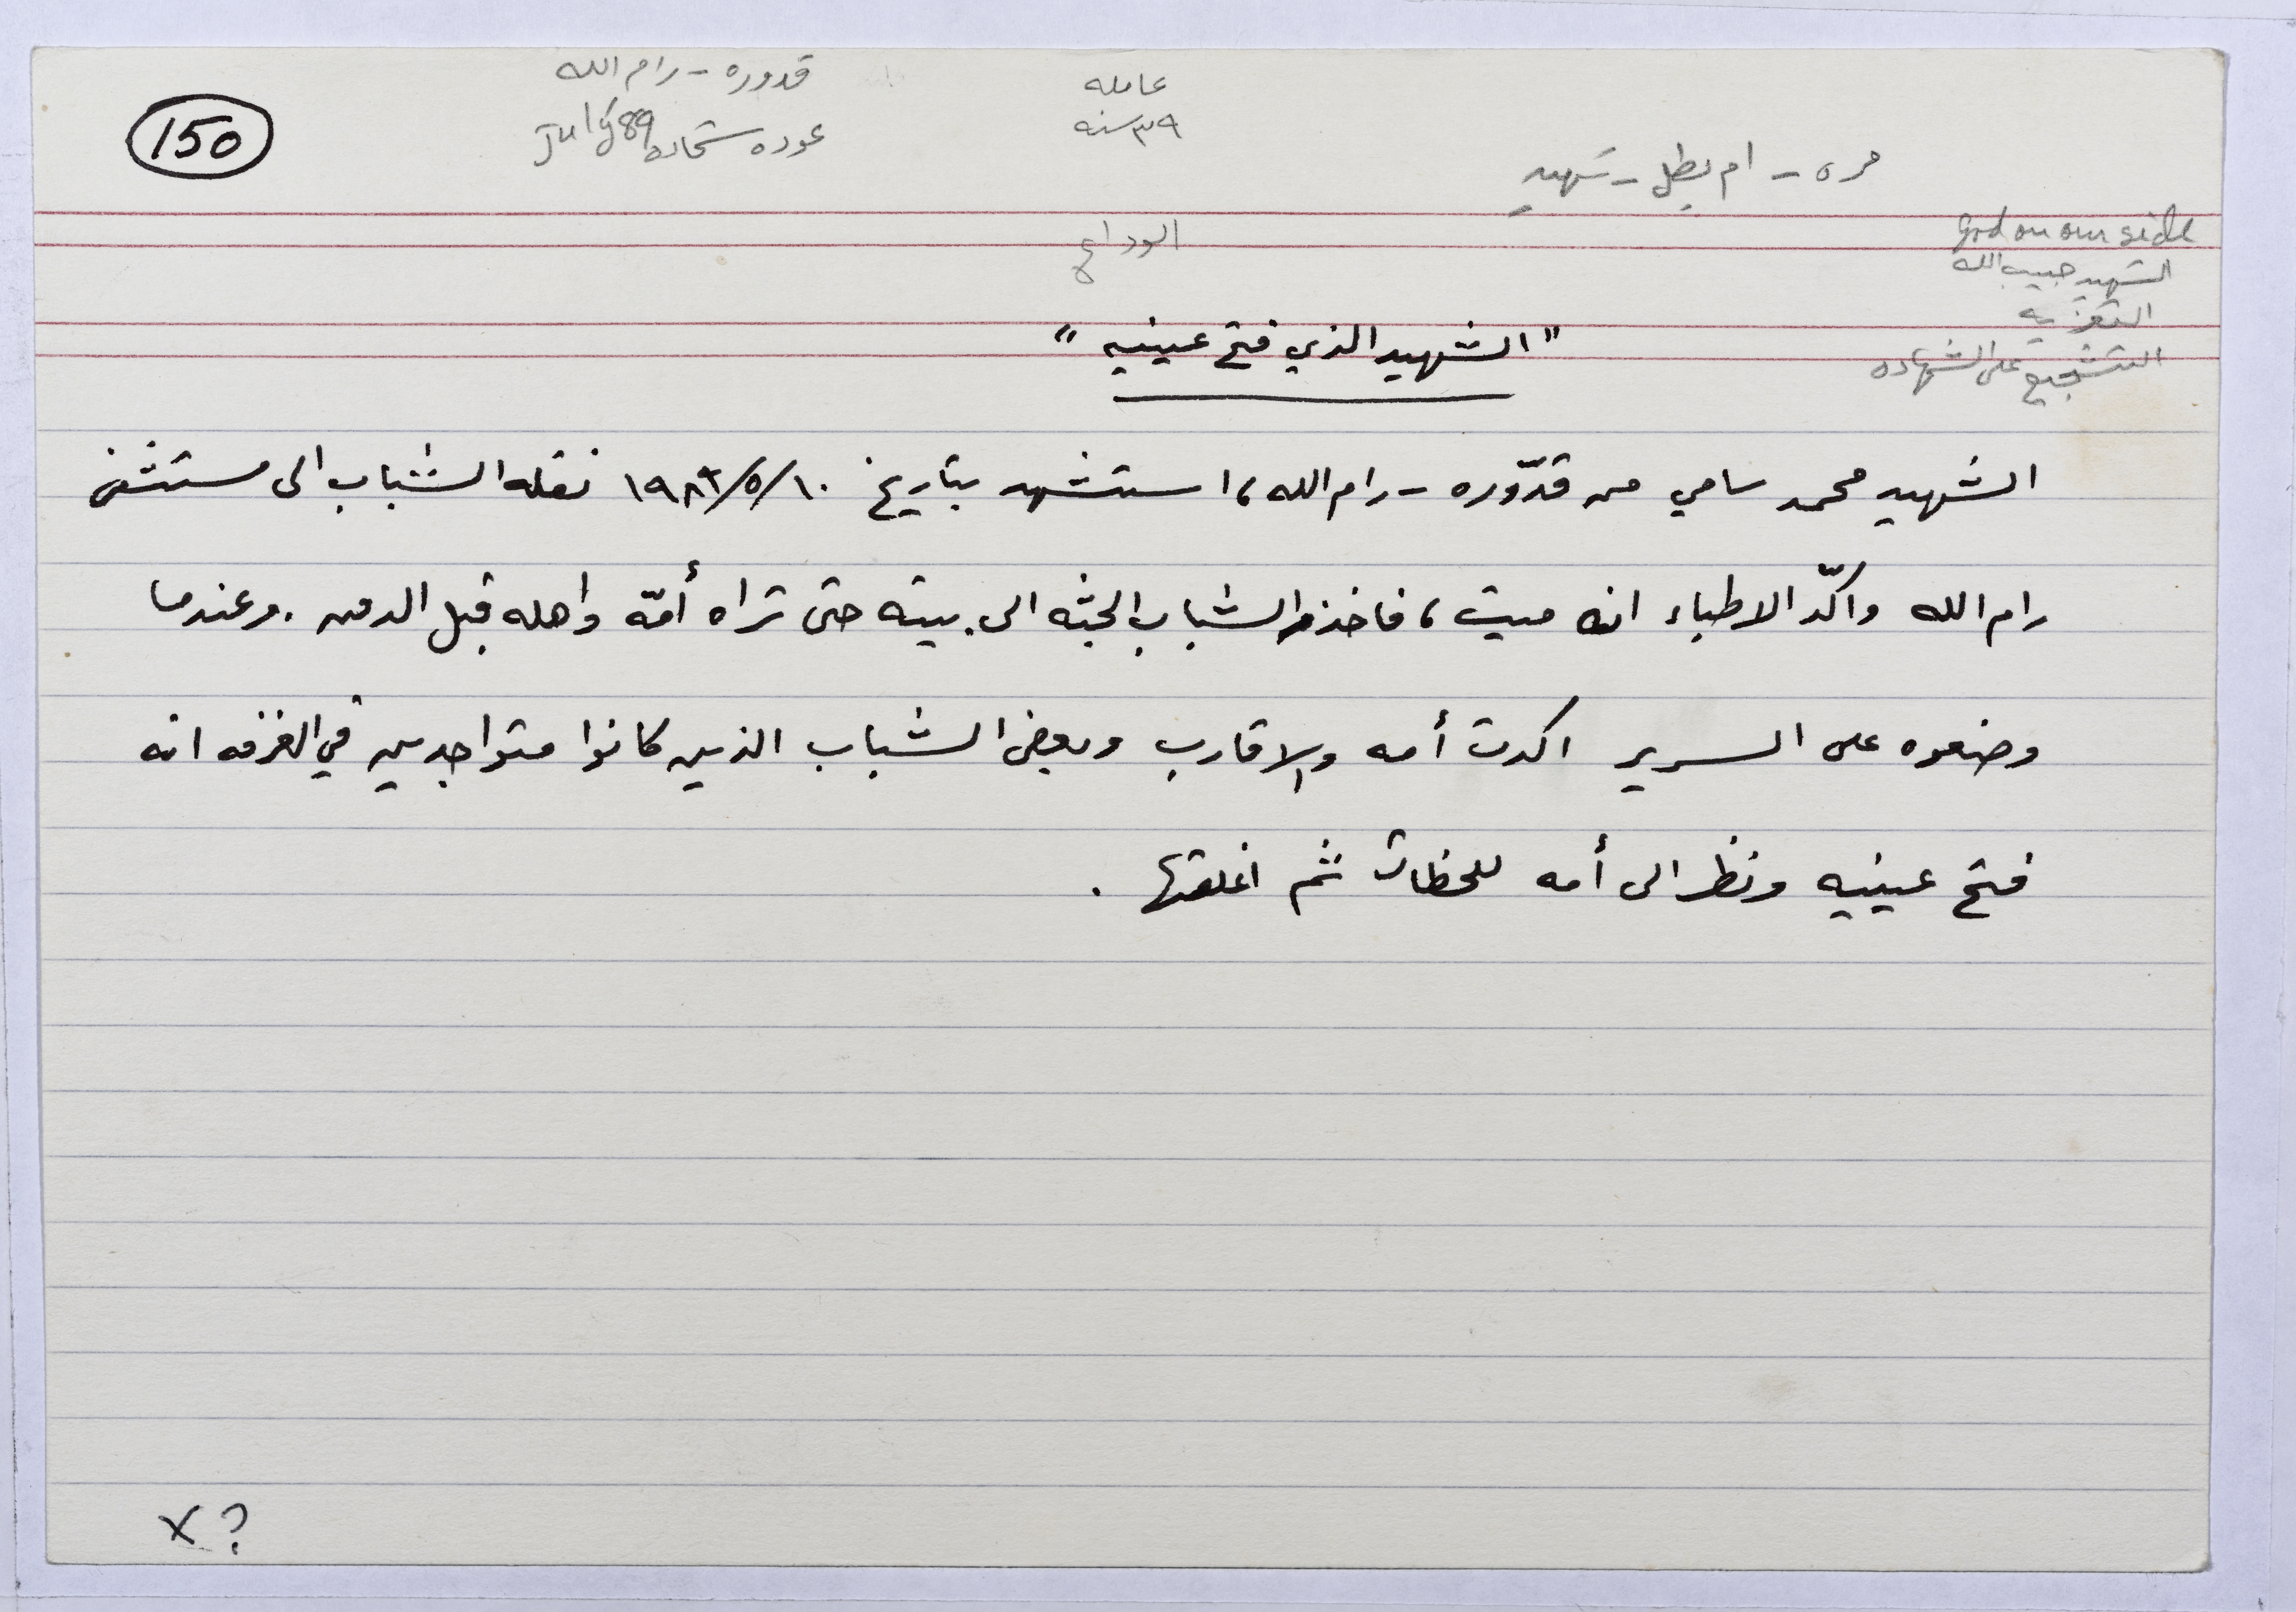 150
قدوره - رام الله
عوده شحاده July 89
عامله
٣٩ سنه
مره - ام بطل - شهيد
God on our side
الشهيد حبيب الله
التعزيه
التشجيع على الشهاده
الوداع
"الشهيد الذي فتح عينيه"
الشهيد محمد سامي من قدّوره - رام الله، استشهد بتاريخ نقله الشباب الى مستشفى
رام الله واكّد الاطباء انه ميت، فاخذ الشباب الجثه الى بيته حتى تراه أمّه واهله قبل الدفن. وعندما
وضعوه على السرير اكدت أمه والاقارب وبعض الشباب الذين كانوا متواجدين في الغرفه انه
فتح عينيه ونظر الى أمه للحظات ثم اغلقتها.
x ?